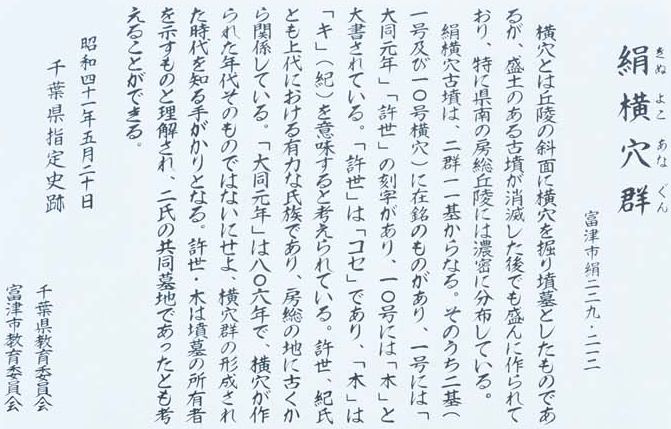 絹横穴群
きぬよこあなぐん
富津市絹二二九・二一二
横穴とは丘陵の斜面に横穴を掘り墳墓としたものであ
るが、盛土のある古墳が消滅した後でも盛んに作られて
おり、特に県南の房総丘陵には濃密に分布している。
絹横穴古墳は、二群一一基からなる。そのうち二基(
一号及び一〇号横穴)に在銘のものがあり、一号には「
大同元年」「許世」の刻字があり、一〇号には「木」と
大書されている。「許世」は「コセ」であり、「木」は
「キ」(紀)を意味すると考えられている。許世、紀氏
とも上代における有力な氏族であり、房総の地に古くか
ら関係している。「大同元年」は八〇六年で、横穴が作
られた年代そのものではないにせよ、横穴群の形成され
た時代を知る手がかりとなる。許世・木は墳墓の所有者
を示すものと理解され、二氏の共同墓地であったとも考
えることができる。
昭和四十一年五月二十日
千葉県指定史跡
千葉県教育委員会
富津市教育委員会